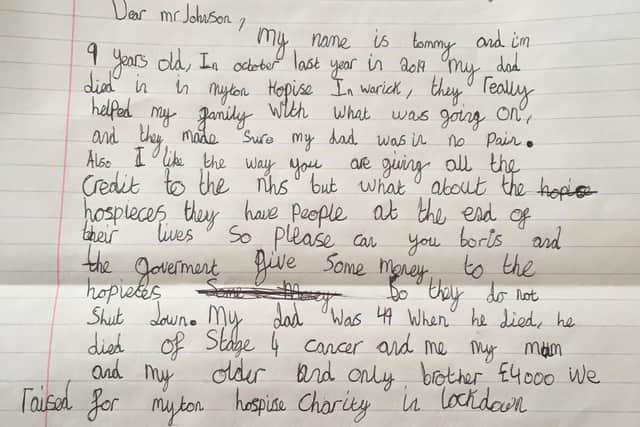 Dear mr Johnson,
My name is tommy and im
9 years old, In october last year in 2019 my dad
died in in myton Hopise In warick, they really
helped my family with what was going on,
and they made sure my dad was in no pain.
Also I like the way you are giving all the
Credit to the nhs but what about the hopise
hospieces they have people at the end of
their lives so please can you boris and
the goverment give some money to the
hopieces some money so they do not
Shut down. My dad was 49 when he died, he
died of Stage 4 cancer and me my mum
and my older and only brother £4000 we
raised for myton hospise Charity in lockdown